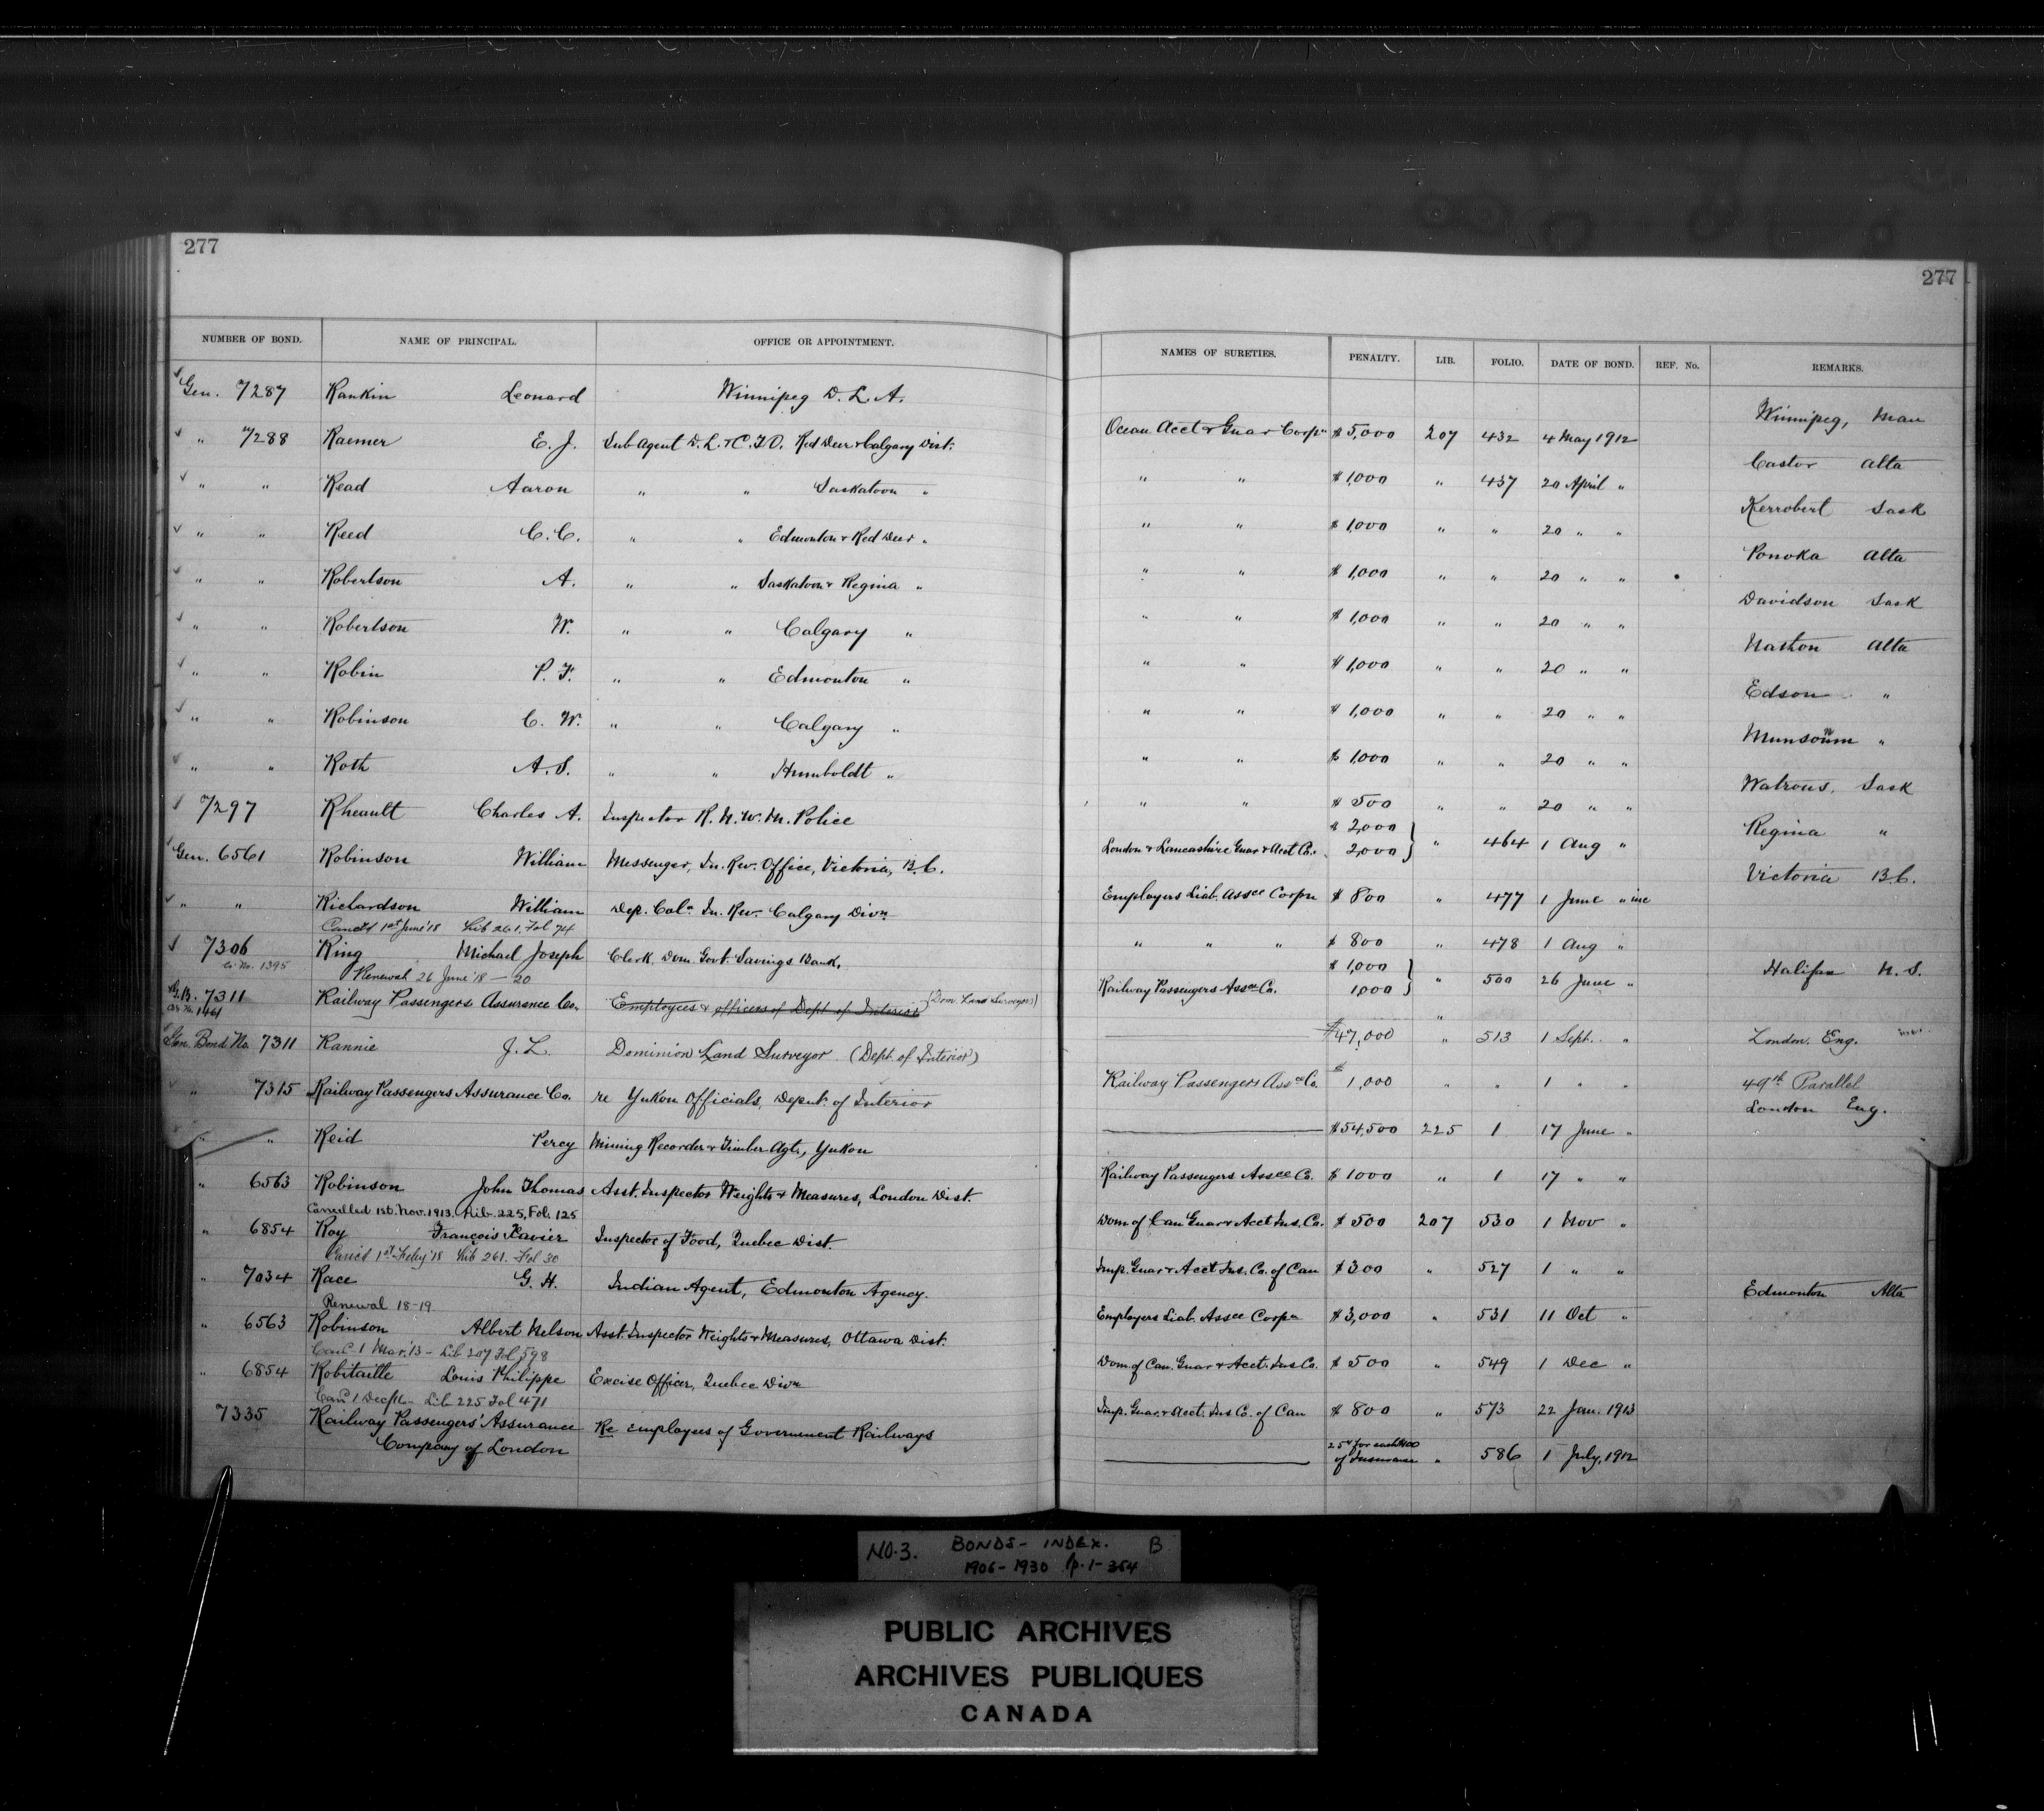 277
277
NUMBER OF BOND. NAME OF PRINCIPAL. OFFICE OR APPOINTMENT. NAMES OF SURETIES. PENALTY. LIB. FOLIO. DATE OF BOND. REF. No. REMARKS.
Gen. 7287 Rankin Leonard Winnipeg D. L. A. Ocean Acct & Guar Corpn $5,000 207 432 4 May 1912 Winnipeg, Man
" 7288 Raemer E. J. Sub Agent D. L. & C. T. O. Red Deer & Calgary Dist. " " $1,000 " 437 20 April " Castor Alta
" " Read Aaron " " Saskatoon " " " $1,000 " " 20 " " Kerrobert Sask
" " Reed C. C. " " Edmonton & Red Deer " " " $1,000 " " 20 " " Ponoka Alta
" " Robertson A. " " Saskatoon & Regina " " " $1,000 " " 20 " " Davidson Sask
" " Robertson W. " " Calgary " " " $1,000 " " 20 " " Alta
" " Robin P. F. " " Edmonton " " " $1,000 " " 20 " " Edson "
" " Robinson C. W. " " Calgary " " " $1,000 " " 20 " " "
" " Roth A. S. " " Humboldt " " " $500 " " 20 " " Watrous, Sask
7297 Rheault Charles A. Inspector R. N. W. M. Police London & Lancashire Guar & Acct Co. $2,000 2,000 } " 464 1 Aug " Regina "
Gen. 6561 Robinson William Messenger, In. Rev. Office, Victoria, B.C. Employers Liab. Assce Corpn $800 " 477 1 June " Victoria B.C.
" " Richardson William Dep. Colr In. Rev. Calgary Divn " " " $800 " 478 1 Aug "
Canc'd 1st June '18 Lib 261. Fol 74
7306 Ring Michael Joseph Clerk Dom. Govt. Savings Bank, Railway Passengers Assce Co. $1,000 1,000 } " 500 26 June " Halifax N. S.
No. 1395 Renewal 26 June '18 - 20
G.B. 7311 Railway Passengers Assurance Co. Employees & officers of Dept of Interior (Dom. Land Surveyors) $47,000 " 513 1 Sept. " London. Eng.
No. 1461
Gen. Bond No. 7311 Rannie J. L. Dominion Land Surveyor (Dept. of Interior) Railway Passengers Assce Co. $1,000 " " 1 " " 49th Parallel
" 7315 Railway Passengers Assurance Co. re Yukon Officials, Dept. of Interior $54,500 225 1 17 June " London Eng.
" " Reid Percy Mining Recorder & Timber Agt., Yukon Railway Passengers Assce Co. $1000 " 1 17 " "
" 6563 Robinson John Thomas Asst. Inspector Weights & Measures, London Dist. Dom. of Can Guar & Acct Ins. Co. $500 207 530 1 Nov "
Cancelled 1st. Nov. 1913. Lib. 225, Fol. 125
" 6854 Roy François Xavier Inspector of Food, Quebec Dist. Imp. Guar & Acct Ins. Co. of Can $300 " 527 1 " "
Canc'd 1st Feby '18 Lib 261. Fol 30
" 7034 Race G. H. Indian Agent, Edmonton Agency. Employers Liab. Assce Corpn $3,000 " 531 11 Oct " Edmonton Alta
Renewal 18-19
" 6563 Robinson Albert Nelson Asst. Inspector Weights & Measures, Ottawa Dist. Dom. of Can. Guar & Acct. Ins Co. $500 " 549 1 Dec "
Canc'd 1 Mar. '13 - Lib 207 Fol 598
" 6854 Robitaille Louis Philippe Excise Officer, Quebec Divn Imp. Guar. & Acct. Ins Co. of Can $800 " 573 22 Jan. 1913
Lib 225 Fol 471
7335 Railway Passengers' Assurance Re employees of Government Railways 25¢ for each $100 of Insurance " 586 1 July, 1912
Company of London
NO. 3. BONDS - INDEX. B
1906-1930 p. 1-364
PUBLIC ARCHIVES
ARCHIVES PUBLIQUES
CANADA